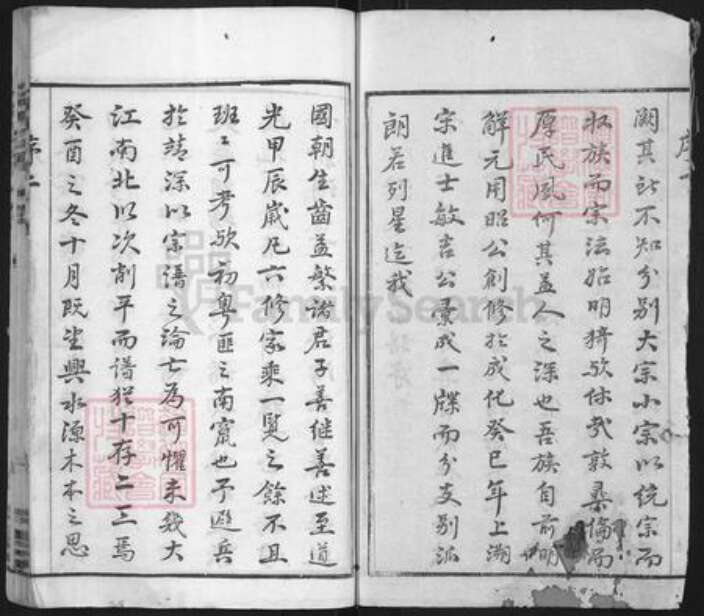 闕其所不知分別大宗小宗以統宗而
收族而宗法始明猗歟休哉敦彝倫而
厚民風何其益人之深也吾族自前明
解元用昭公創修於成化癸巳年上溯
宗進士敏言公彙成一牒而分支別派
朗若列星迄我
國朝生齒益繁諸君子善继善述至道
光甲辰歲凡六修家乘一覽之餘不且
班〻可考歟初粵匪之南竄也予避兵
於靖深以宗譜之淪亡為可懼未幾大
江南北以次削平而譜猶十存二三焉
癸酉之冬十月既望興水源木本之思
序二
FamilySearch